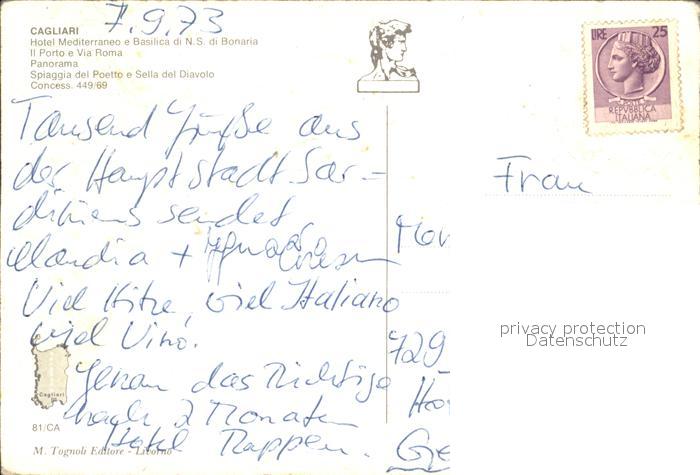 7.9.73
CAGLIARI
Hotel Mediterraneo e Basilica di N.S. di Bonaria
Il Porto e Via Roma
Panorama
Spiaggia del Poetto e Sella del Diavolo
Concess. 449/69
LIRE 25
POSTE
REPVBBLICA
ITALIANA
Tausend Grüße aus
der Hauptstadt Sar-
diniens sendet
+
Viel Hitze, viel Italiano
viel Vino.
Genau das Richtige
nach 2 Monaten
Hotel Rappen.
Frau
729
privacy protection
Datenschutz
Cagliari
81/CA
M. Tognoli Editore - Livorno